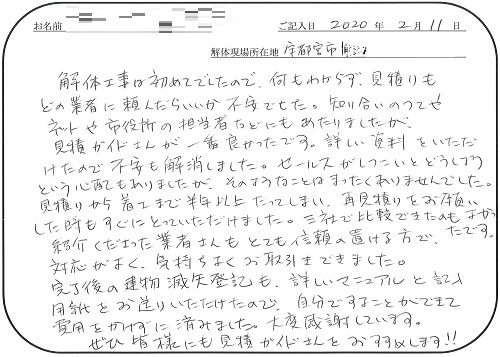 お名前 ご記入日 2020 年 2 月 11 日
解体現場所在地 宇都宮市
解体工事は初めてでしたので、何もわからず、見積りも
どの業者に頼んだらいいか不安でした。知り合いのつてや
ネットや市役所の担当者などにもあたりましたが、
見積ガイドさんが一番良かったです。詳しい資料をいただ
けたので不安も解消しました。セールスがしつこいとどうしよう
という心配もありましたが、そのようなことはまったくありませんでした。
見積りから着工まで半年以上たってしまい、再見積りをお願い
した時もすぐにとっていただけました。三社で比較できたのもよかったです。
紹介くださった業者さんもとても信頼の置ける方で、
対応がよく、気持ちよくお取引きできました。
完了後の建物滅失登記も、詳しいマニュアルと記入
用紙をお送りいただけたので、自分ですることができて
費用をかけずに済みました。大変感謝しています。
ぜひ皆様にも見積ガイドさんをおすすめします!!